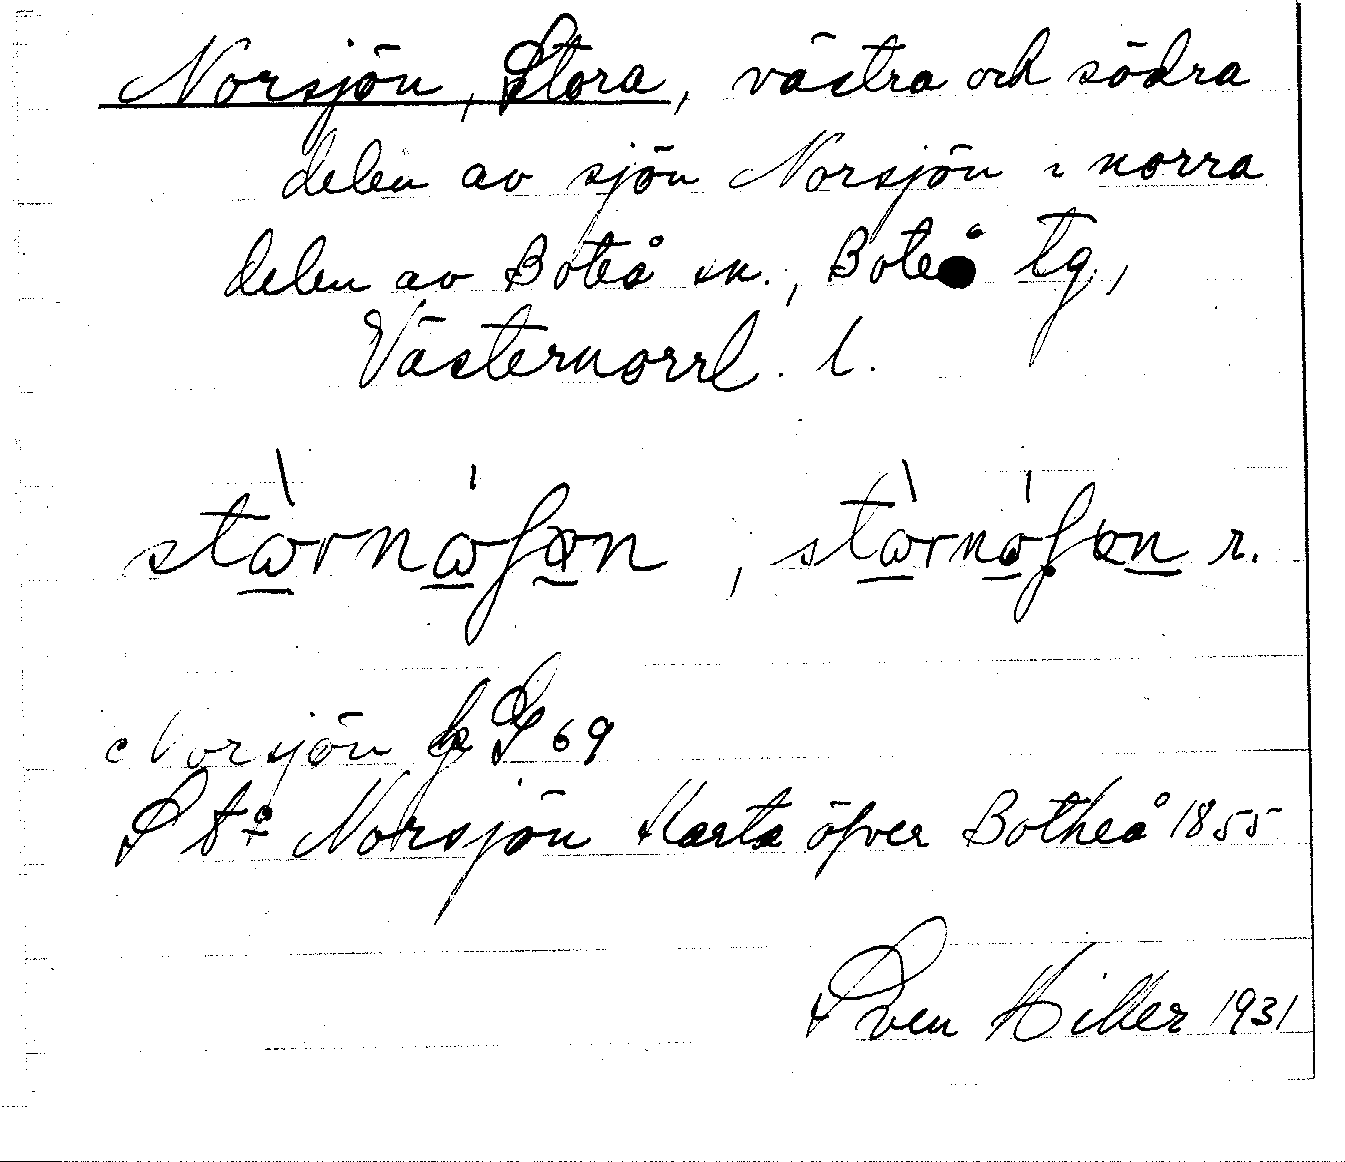 Norsjön, Stora, västra och södra
delen av sjön Norsjön i norra
delen av Boteå sn., Boteå tg,
Västernorrl. l.
Norsjön S 69
St:a Norsjön Karta öfver Botheå 1855
Sven Hiller 1931